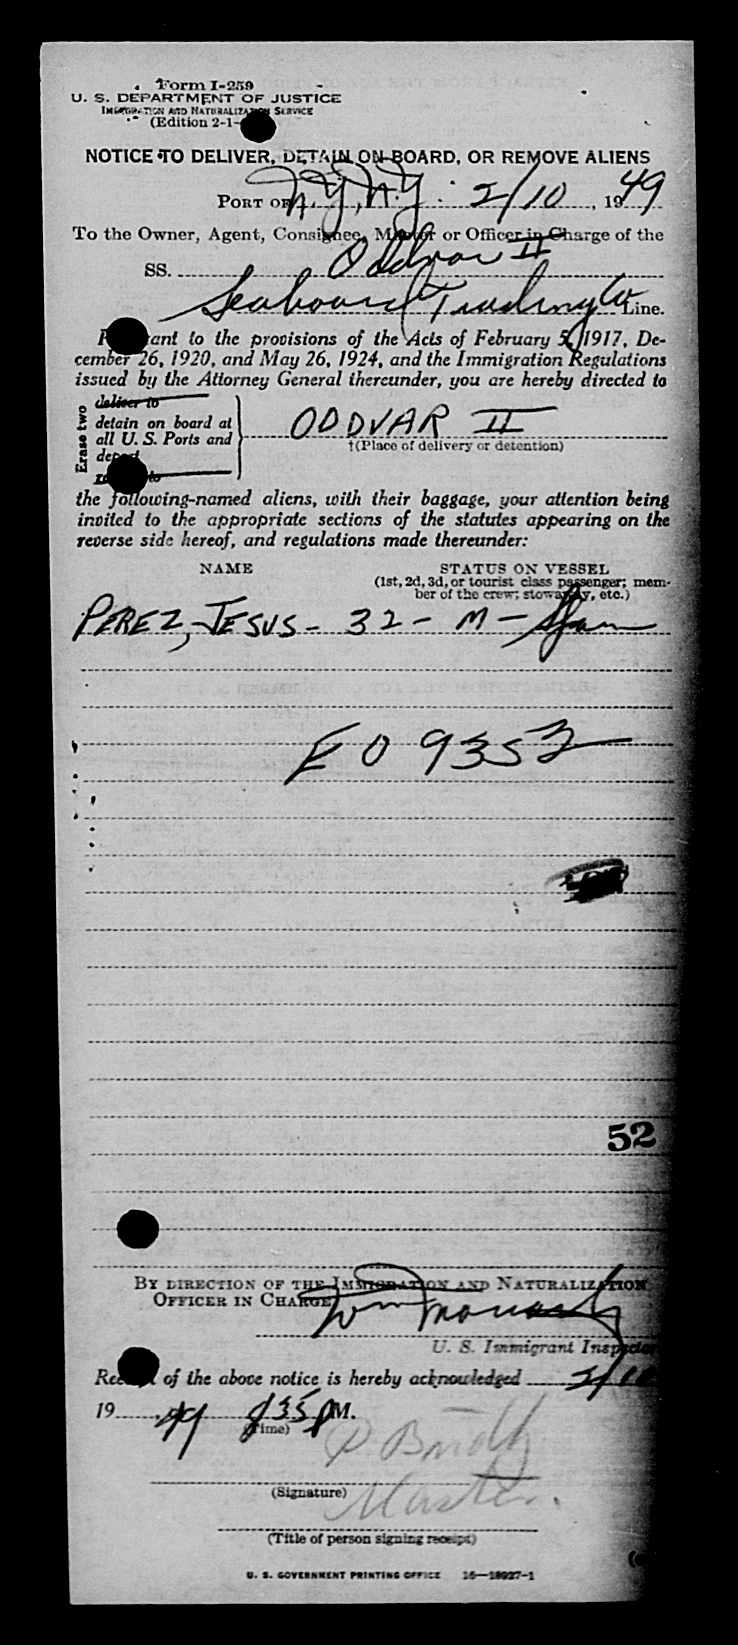 Form I-259
U. S. DEPARTMENT OF JUSTICE
IMMIGRATION AND NATURALIZATION SERVICE
(Edition 2-1-
NOTICE TO DELIVER, DETAIN ON BOARD, OR REMOVE ALIENS
PORT OF N.Y., N.Y. 2/10, 1949
To the Owner, Agent, Consignee, Master or Officer in Charge of the
SS. Oddvar II
Seaboard Trading Co Line.
Pursuant to the provisions of the Acts of February 5, 1917, De-
cember 26, 1920, and May 26, 1924, and the Immigration Regulations
issued by the Attorney General thereunder, you are hereby directed to
Erase two
deliver to
detain on board at
all U. S. Ports and
deport
remove to
ODDVAR II
†(Place of delivery or detention)
the following-named aliens, with their baggage, your attention being
invited to the appropriate sections of the statutes appearing on the
reverse side hereof, and regulations made thereunder:
NAME STATUS ON VESSEL
(1st, 2d, 3d, or tourist class passenger; mem-
ber of the crew; stowaway, etc.)
PEREZ, JESUS - 32 - M - Span
E O 9352
52
BY DIRECTION OF THE IMMIGRATION AND NATURALIZATION
OFFICER IN CHARGE
Wm
U. S. Immigrant Inspector
Receipt of the above notice is hereby acknowledged 2/10
1949 8 35 PM.
(Time)
P.
(Signature)
Master.
(Title of person signing receipt)
U. S. GOVERNMENT PRINTING OFFICE 16—18927-1